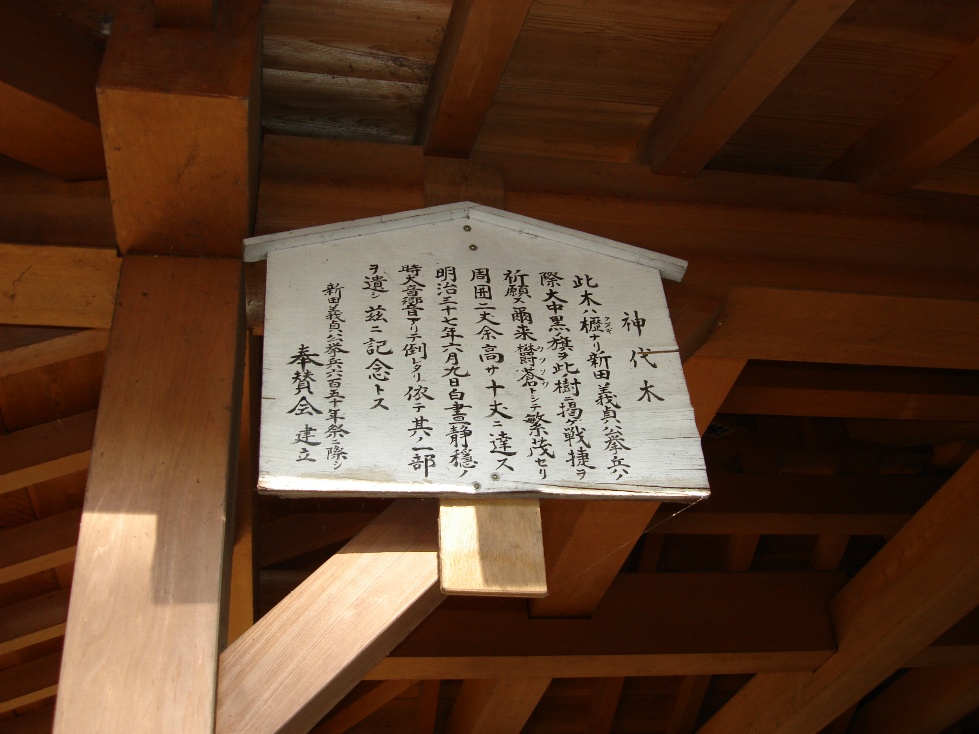 神代木
此木ハ櫪ナリ新田義貞公挙兵ノ
クヌギ
際大中黒ノ旗ヲ此樹ニ掲ゲ戦捷ヲ
祈願ス爾来欝蒼トシテ繁茂セリ
ウツソウ
周囲二丈余高サ十丈ニ達ス
明治三十七年六月九日白晝静穏ノ
時大音響アリテ倒レタリ依テ其ノ一部
ヲ遺シ茲ニ記念トス
新田義貞公挙兵六百五十年祭ニ際シ
奉賛会建立